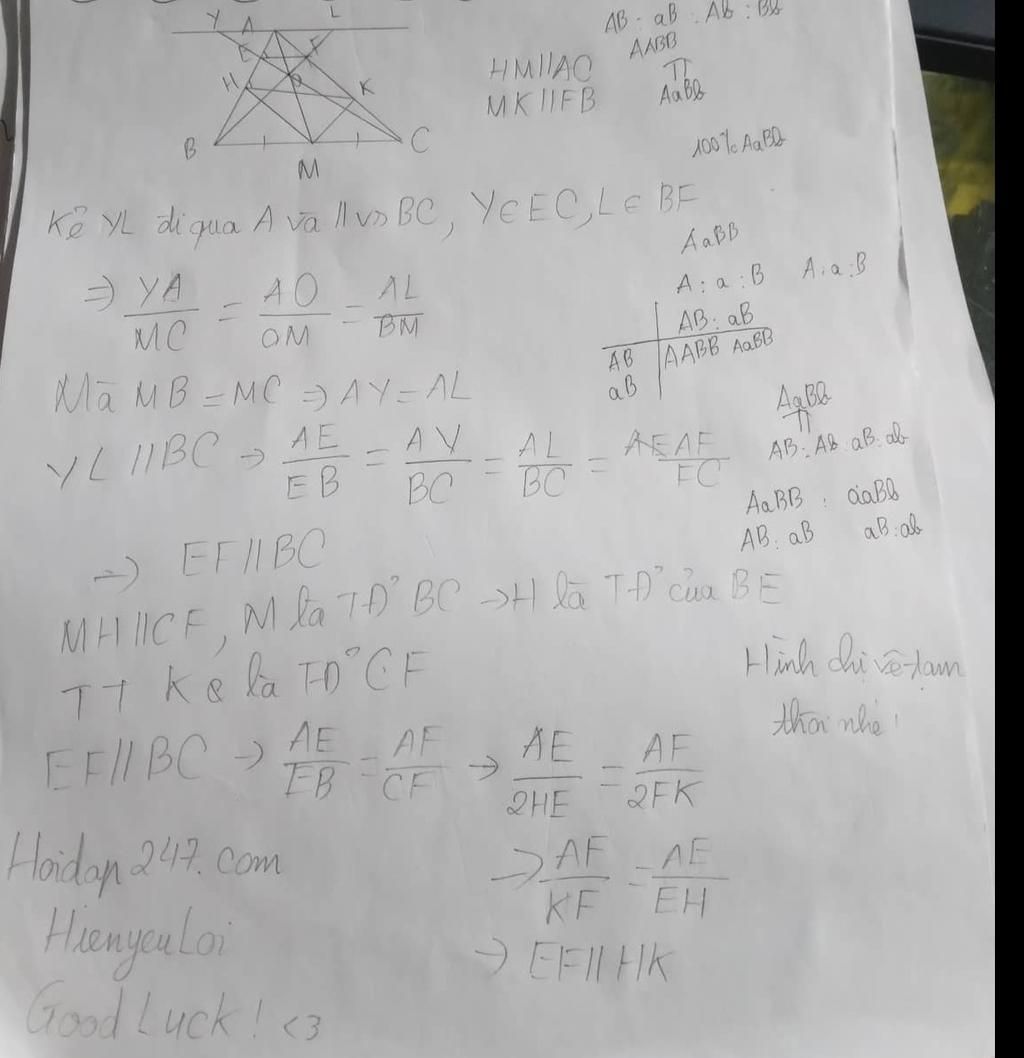 Y A L
E F
H O K
B M C
AB : aB : Ab : Bb
AABB
HM//AC
MK//FB
AaBb
100% AaBb
Kẻ YL đi qua A và // vs BC, Y∈EC, L∈BF
⇒ YA/MC = AO/OM = AL/BM
Mà MB = MC ⇒ AY = AL
YL//BC → AE/EB = AY/BC = AL/BC = AF/FC
→ EF//BC
MH//CF, M là TĐ° BC → H là TĐ° của BE
TT K là TĐ° CF
EF//BC → AE/EB = AF/CF → AE/2HE = AF/2FK
→ AF/KF = AE/EH
→ EF//HK
AaBB
A : a : B A : a : B
AB : aB
AB AABB AaBB
aB
AaBb
AB : Ab : aB : ab
AaBB : aaBb
AB : aB aB : ab
Hình chị vẽ tạm
thôi nhé!
Hoidap247.com
HienyeuLoi
Good Luck! <3